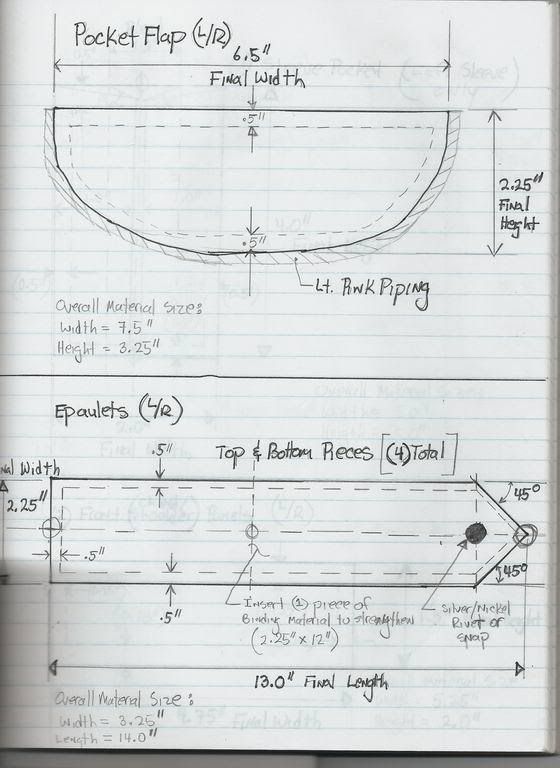 Pocket Flap (L/R)
6.5"
Final Width
.5"
2.25"
Final
Height
.5"
Lt. Pink Piping
Overall Material Size:
Width = 7.5"
Height = 3.25"
Epaulets (L/R)
Top & Bottom Pieces [(4) Total]
.5"
nal Width
2.25"
45°
.5"
45°
.5"
Insert (1) piece of
Binding Material to strengthen
(2.25" x 12")
Silver/Nickel
Rivet or
Snap
13.0" Final Length
Overall Material Size:
Width = 3.25"
Length = 14.0"